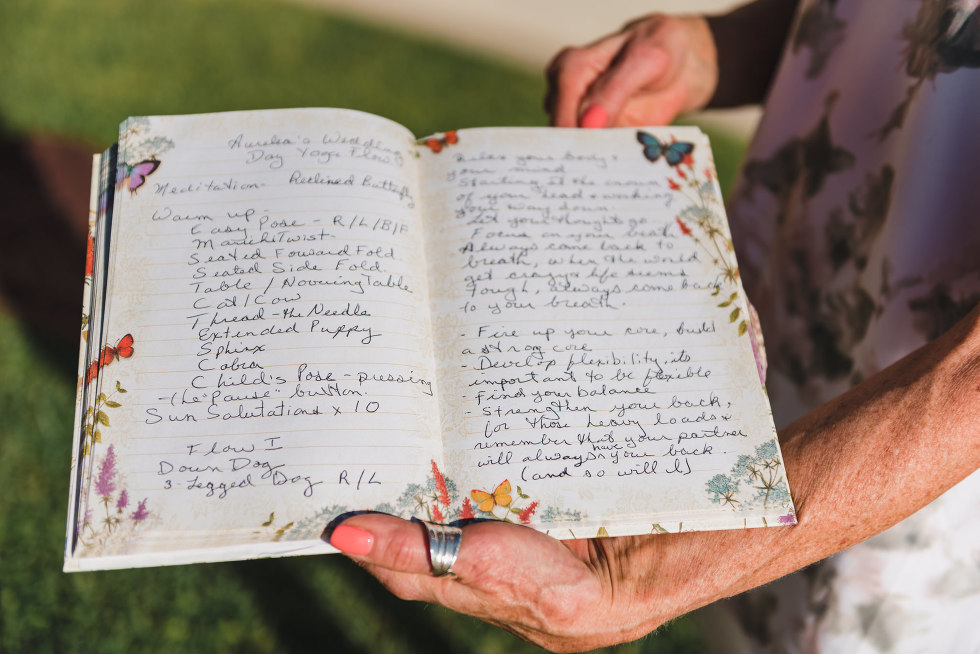 Aurelia's Wedding
Day Yoga Flow
Meditation - Reclined Butterfly
Warm up -
Easy Pose - R/L/B/F
Twist
Seated Foward Fold
Seated Side Fold.
Table / Hovering Table
Cat/Cow
Thread-the Needle
Extended Puppy
Sphinx
Cobra
Child's Pose - pressing
-the "Pause" button.
Sun Salutations x 10
Flow I
Down Dog
3-Legged Dog R/L
Relax your body &
your mind
Starting at the crown
of your head & working
your way down
Let your thoughts go
Focus on your breath
Always come back to
breath, when the world
get crazy & life seems
tough, always come back
to your breath.
- Fire up your core, build
a strong core
- Develop flexibility, its
important to be flexible
- Find your balance
- Strengthen your back,
for those heavy loads &
remember that your partner
will always have your back.
(and so will I)